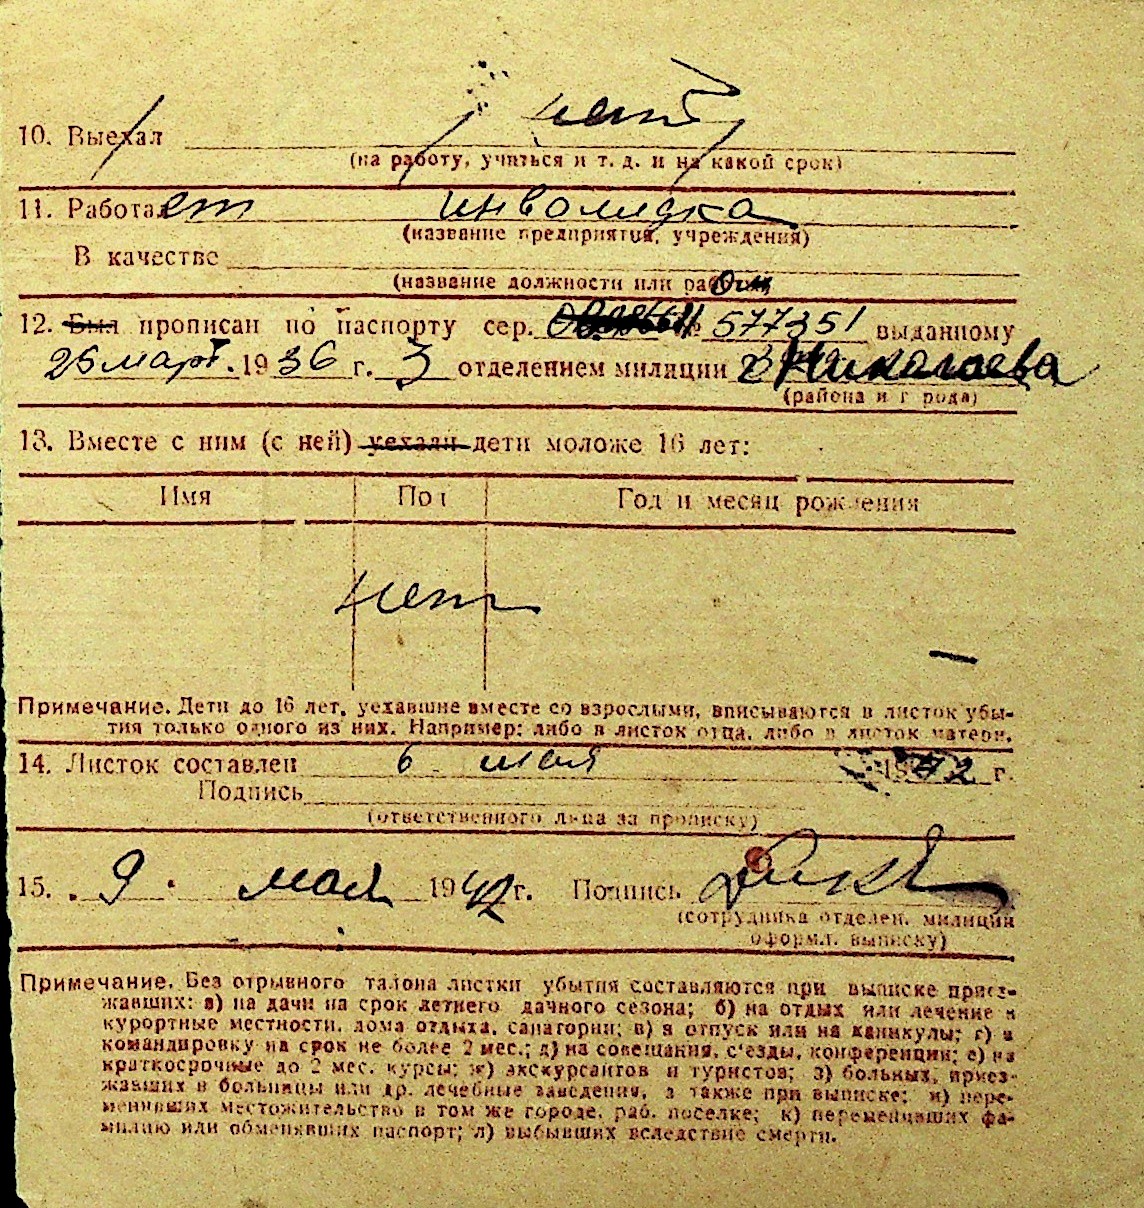 нет
10. Выехал
(на работу, учиться и т. д. и на какой срок)
11. Работает инвалидка
(название предприятия, учреждения)
В качестве
(название должности или работы)
12. Был прописан по паспорту сер. № 577351 выданному
25 март. 1936 г. 3 отделением милиции г Николаева
(района и города)
13. Вместе с ним (с ней) уехали дети моложе 16 лет:
Имя Пол Год и месяц рождения
нет
Примечание. Дети до 16 лет, уехавшие вместе со взрослыми, вписываются в листок убы-
тия только одного из них. Например: либо в листок отца, либо в листок матери.
14. Листок составлен 6 мая 1942 г.
Подпись
(ответственного лица за прописку)
15. 9 мая 1942 г. Подпись
(сотрудника отделен. милиции
оформл. выписку)
Примечание. Без отрывного талона листки убытия составляются при выписке приез-
жавших: а) на дачи на срок летнего дачного сезона; б) на отдых или лечение в
курортные местности, дома отдыха, санатории; в) в отпуск или на каникулы; г) в
командировку на срок не более 2 мес.; д) на совещания, с'езды, конференции; е) на
краткосрочные до 2 мес. курсы; ж) экскурсантов и туристов; з) больных, приез-
жавших в больницы или др. лечебные заведения, а также при выписке; и) пере-
менивших местожительство в том же городе, раб. поселке; к) переменивших фа-
милию или обменявших паспорт; л) выбывших вследствие смерти.